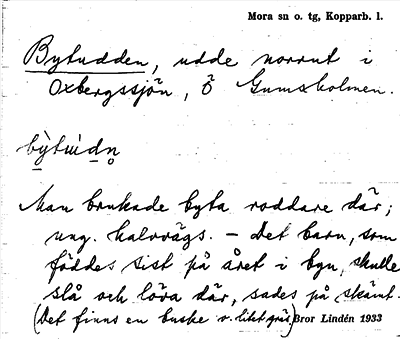 Mora sn o. tg, Kopparb. l.
Bytudden, udde norrut i
Oxbergssjön, Ö Gumsholmen.
bỳtùdn̥
Man brukade byta roddare där;
ung. halvvägs. – Det barn, som
föddes sist på året i byn, skulle
slå och löva där, sades på skämt.
(Det finns en buske o. litet gräs.) Bror Lindén 1933